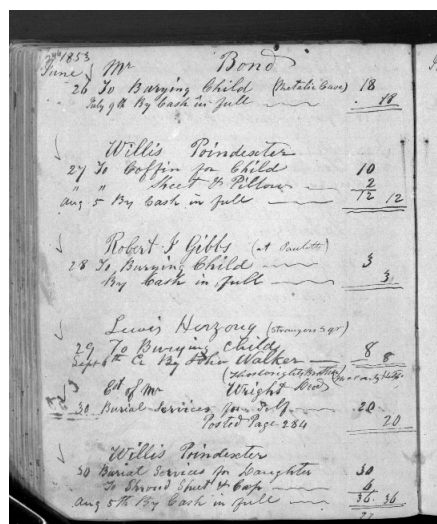 1853
June Mr Bond
26 To Burying Child (Metalic Case) 18
July 9th By Cash in full 18
Willis Poindexter
27 To Coffin for Child 10
" " Sheet & Pillow 2
12
Aug 5 By Cash in full 12
Robert J Gibbs (at
28 To Burying Child 3
By Cash in full 3
Lewis Herzoug (Strangers
29 To Burying Child 8
Sept 6th Cr By John Walker 8
Est of Mr Wright Decd
30 Burial Services for Self 20
Posted Page 284 20
Willis Poindexter
30 Burial Services for Daughter 30
To Shroud Sheet & Cap 6
36
Aug 5th By Cash in full 36